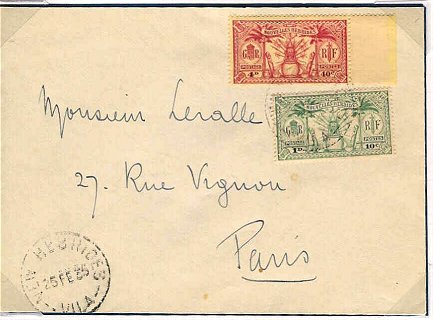 NOUVELLES HEBRIDES
G R R F
POSTAGE POSTES
4D. 40c
NOUVELLES HEBRIDES
G R R F
POSTAGE POSTES
1D. 10c
Monsieur Leralle
27. Rue Vignon
Paris
NEW HEBRIDES
25 FE 35
VILA